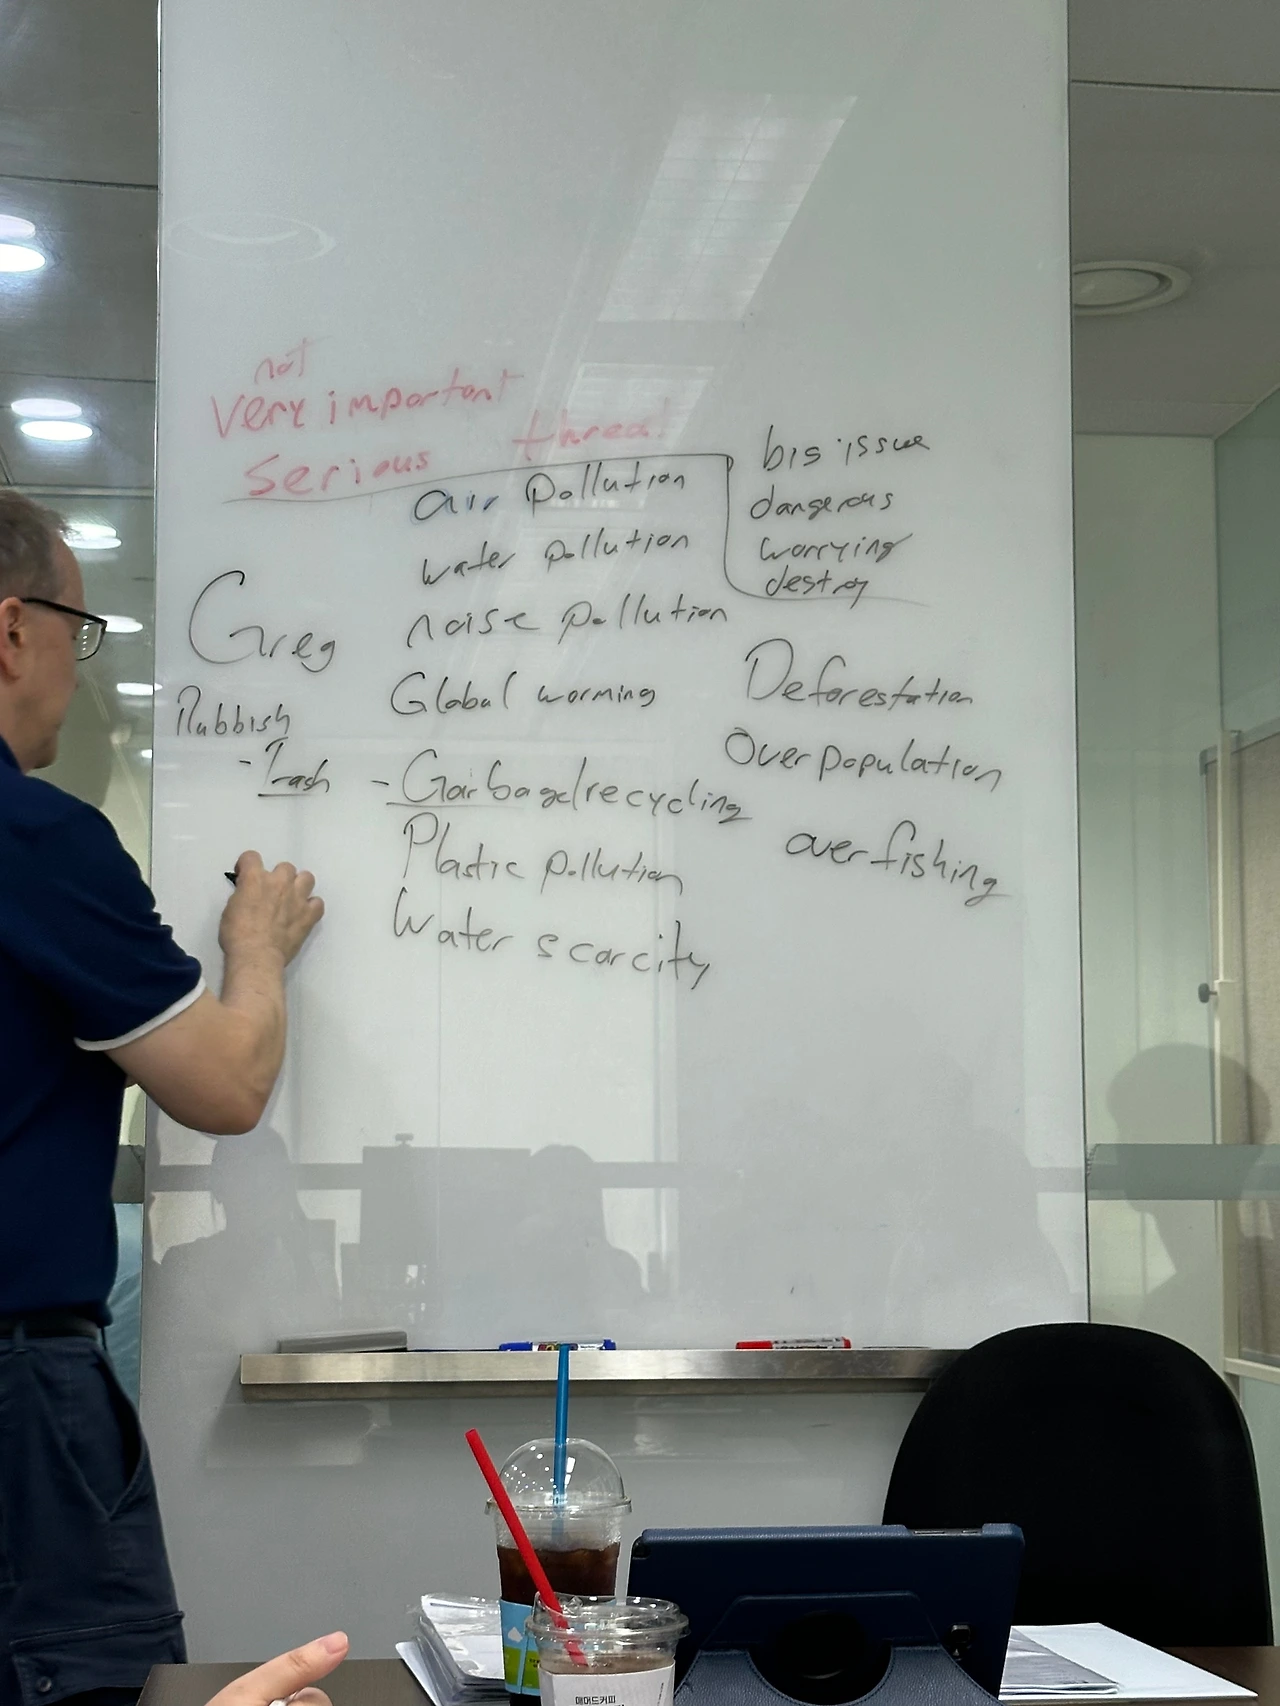 not
very important
serious threat
air pollution
water pollution
noise pollution
Global worming
- Garbage/recycling
Plastic pollution
Water scarcity
big issue
dangerous
worrying
destroy
Greg
Rubbish
- Trash
Deforestation
Overpopulation
over fishing
매머드커피